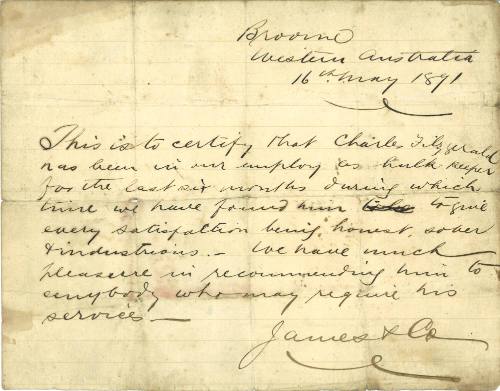 Broome
Western Australia
16th May 1891
This is to certify that Charles Fitzgerald
has been in our employ as hulk keeper
for the last six months during which
time we have found him to give
every satisfaction being honest, sober
& industrious. - We have much
pleasure in recommending him to
anybody who may require his
services -
James & Co